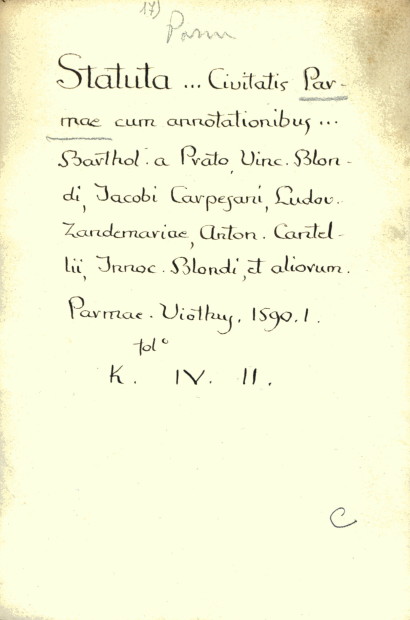 17)
Parm
Statuta ... Civitatis Par-
mae cum annotationibus ...
Barthol. a Prato, Vinc. Blon-
di, Jacobi Carpesani, Ludov.
Zandemariae, Anton. Cantel-
lii, Innoc. Blondi, et aliorum.
Parmae. Viothus. 1590. 1.
fol°
K. IV. II.
C